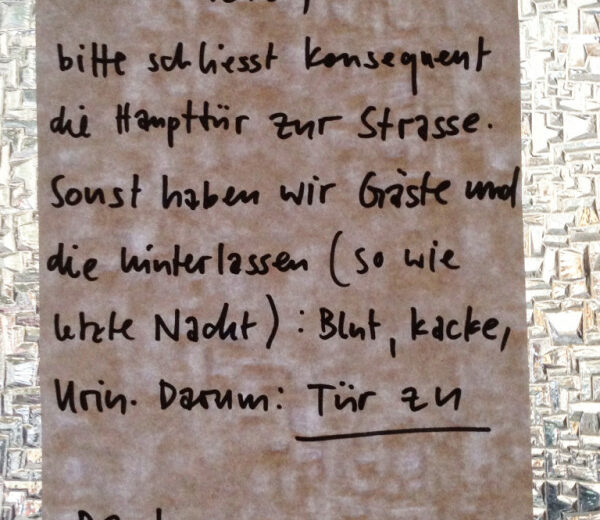 bitte schliesst konsequent
die Haupttür zur Strasse.
Sonst haben wir Gäste und
die hinterlassen (so wie
letzte Nacht): Blut, kacke,
Urin. Darum: Tür zu